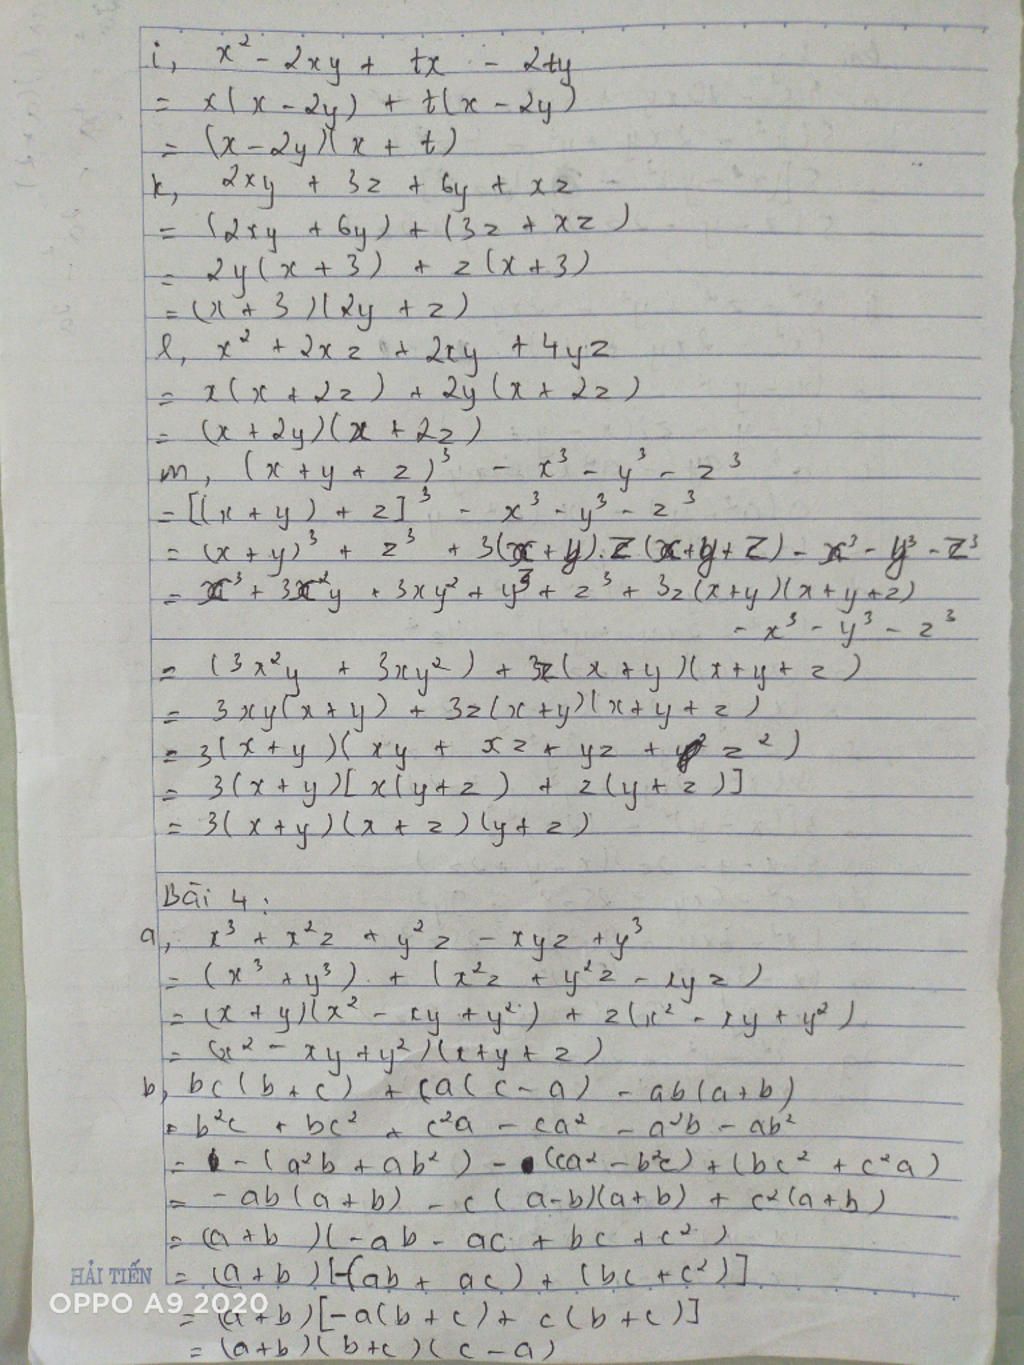 i, x² - 2xy + tx - 2ty
= x(x - 2y) + t(x - 2y)
= (x - 2y)(x + t)
k, 2xy + 3z + 6y + xz
= (2xy + 6y) + (3z + xz)
= 2y(x + 3) + z(x + 3)
= (x + 3)(2y + z)
l, x² + 2xz + 2xy + 4yz
= x(x + 2z) + 2y(x + 2z)
= (x + 2y)(x + 2z)
m, (x + y + z)³ - x³ - y³ - z³
= [(x + y) + z]³ - x³ - y³ - z³
= (x + y)³ + z³ + 3(x + y).z(x + y + z) - x³ - y³ - z³
= x³ + 3x²y + 3xy² + y³ + z³ + 3z(x + y)(x + y + z)
- x³ - y³ - z³
= (3x²y + 3xy²) + 3z(x + y)(x + y + z)
= 3xy(x + y) + 3z(x + y)(x + y + z)
= 3(x + y)(xy + xz + yz + z²)
= 3(x + y)[x(y + z) + z(y + z)]
= 3(x + y)(x + z)(y + z)
Bài 4 :
a, x³ + x²z + y²z - xyz + y³
= (x³ + y³) + (x²z + y²z - xyz)
= (x + y)(x² - xy + y²) + z(x² - xy + y²)
= (x² - xy + y²)(x + y + z)
b, bc(b + c) + ca(c - a) - ab(a + b)
= b²c + bc² + c²a - ca² - a²b - ab²
= - (a²b + ab²) - (ca² - b²c) + (bc² + c²a)
= - ab(a + b) - c(a - b)(a + b) + c²(a + b)
= (a + b)(- ab - ac + bc + c²)
= (a + b)[-(ab + ac) + (bc + c²)]
= (a + b)[-a(b + c) + c(b + c)]
= (a + b)(b + c)(c - a)
HẢI TIẾN
OPPO A9 2020